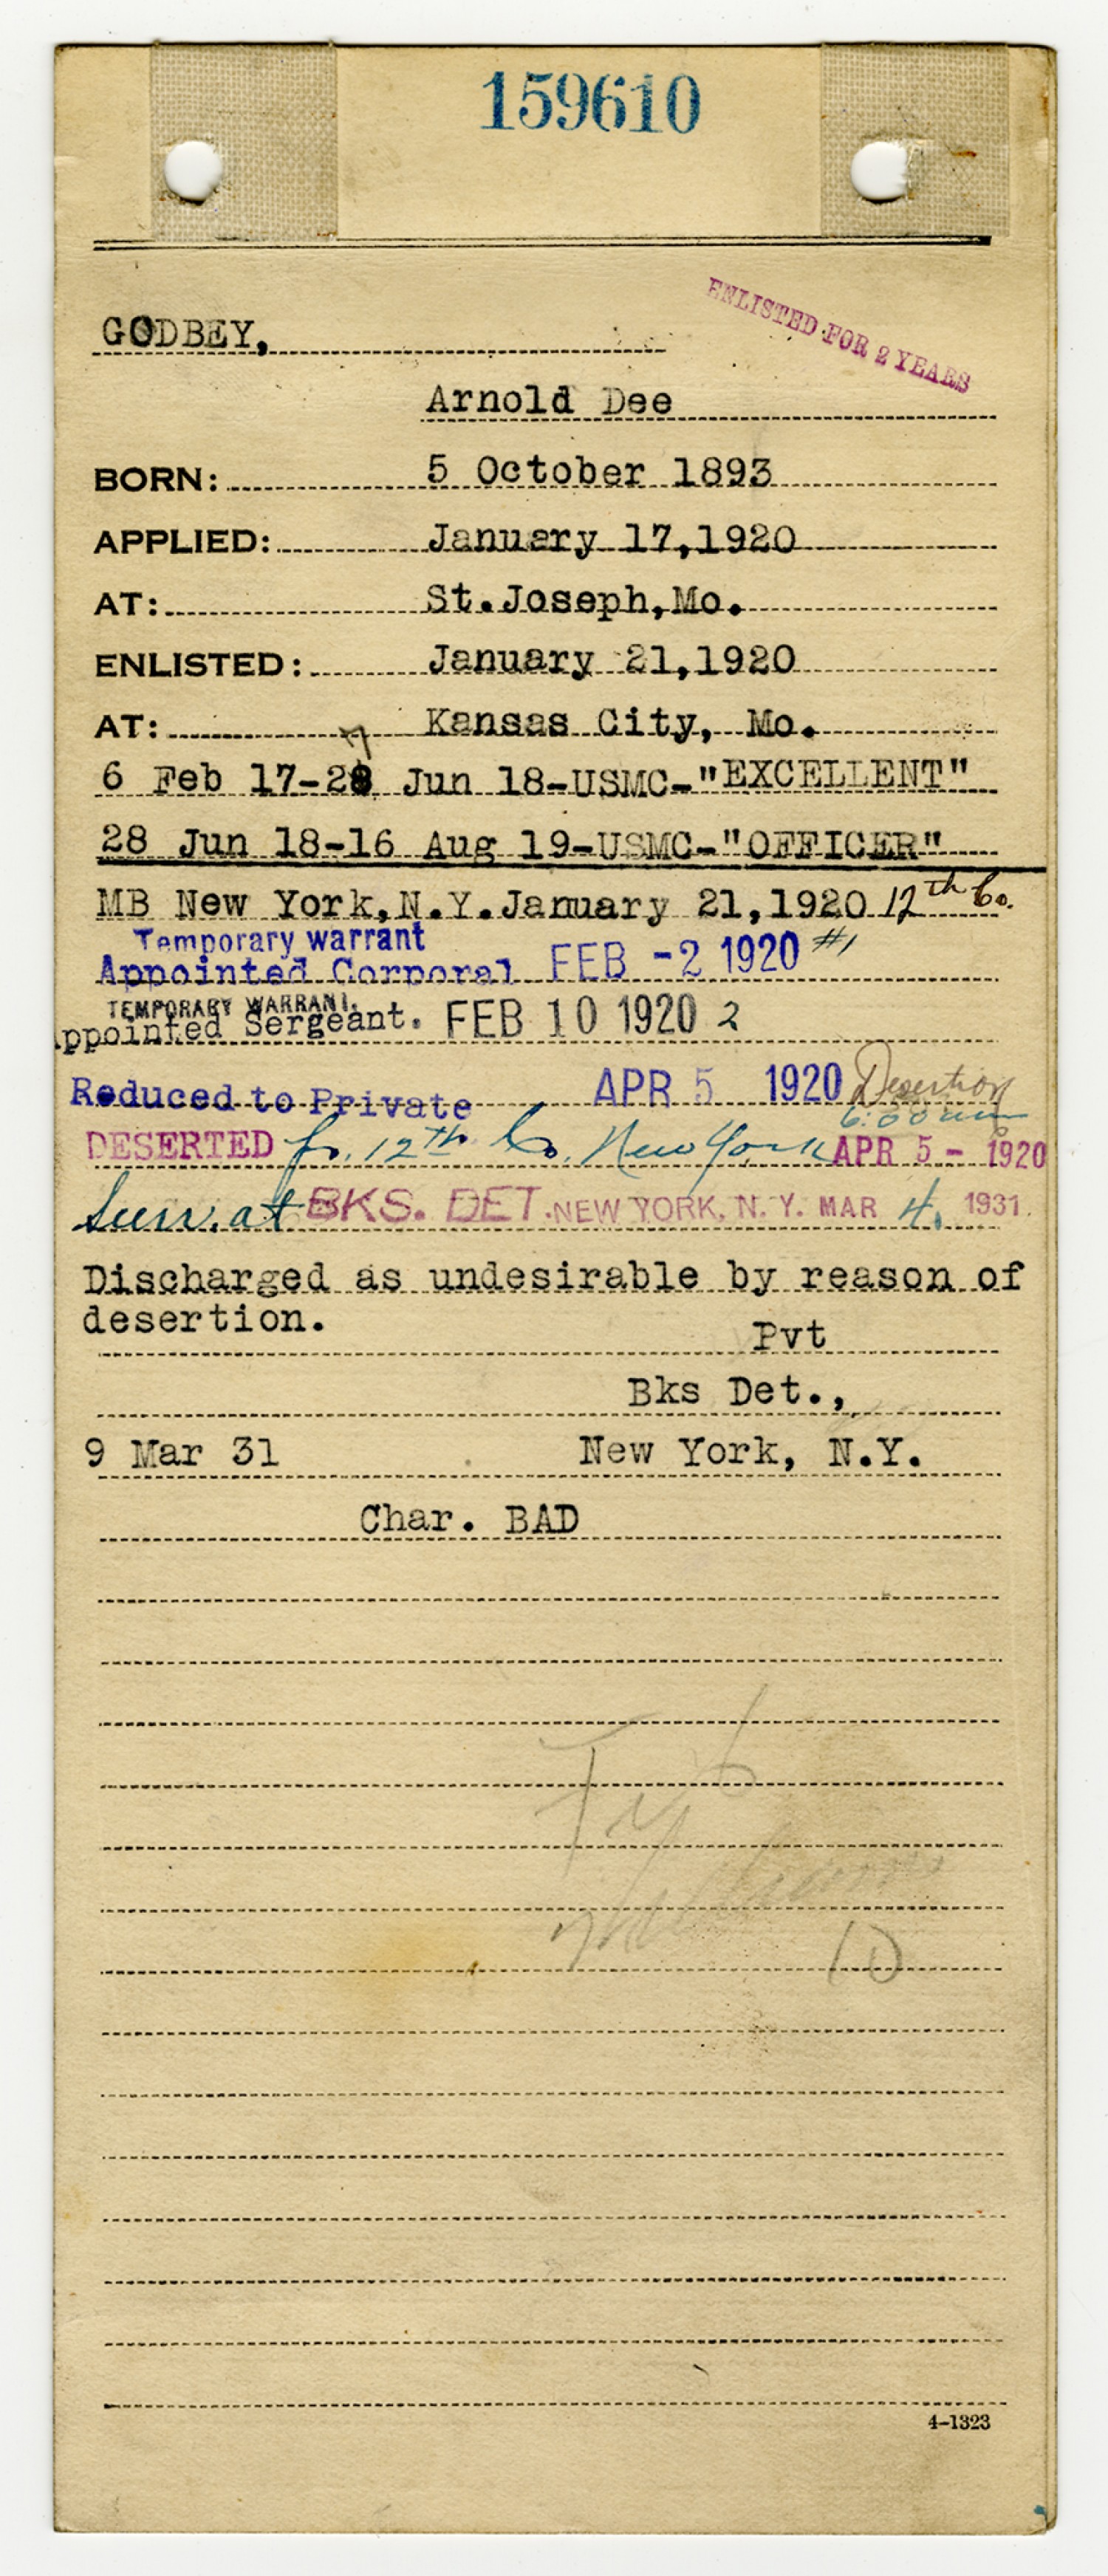 159610
ENLISTED FOR 2 YEARS
GODBEY,
Arnold Dee
BORN: 5 October 1893
APPLIED: January 17,1920
AT: St.Joseph,Mo.
ENLISTED: January 21,1920
AT: Kansas City, Mo.
7
6 Feb 17-28 Jun 18-USMC-"EXCELLENT"
28 Jun 18-16 Aug 19-USMC-"OFFICER"
MB New York,N.Y.January 21,1920 12th Co.
Temporary warrant
Appointed Corporal FEB -2 1920 #1
TEMPORARY WARRANT.
ppointed Sergeant. FEB 10 1920 2
Reduced to Private APR 5 1920 Desertion
6:00 am
DESERTED fr. 12th Co. New York APR 5 - 1920
Surr. at BKS. DET. NEW YORK, N. Y. MAR 4, 1931.
Discharged as undesirable by reason of
desertion.
Pvt
Bks Det.,
9 Mar 31 New York, N.Y.
Char. BAD
10
4-1323